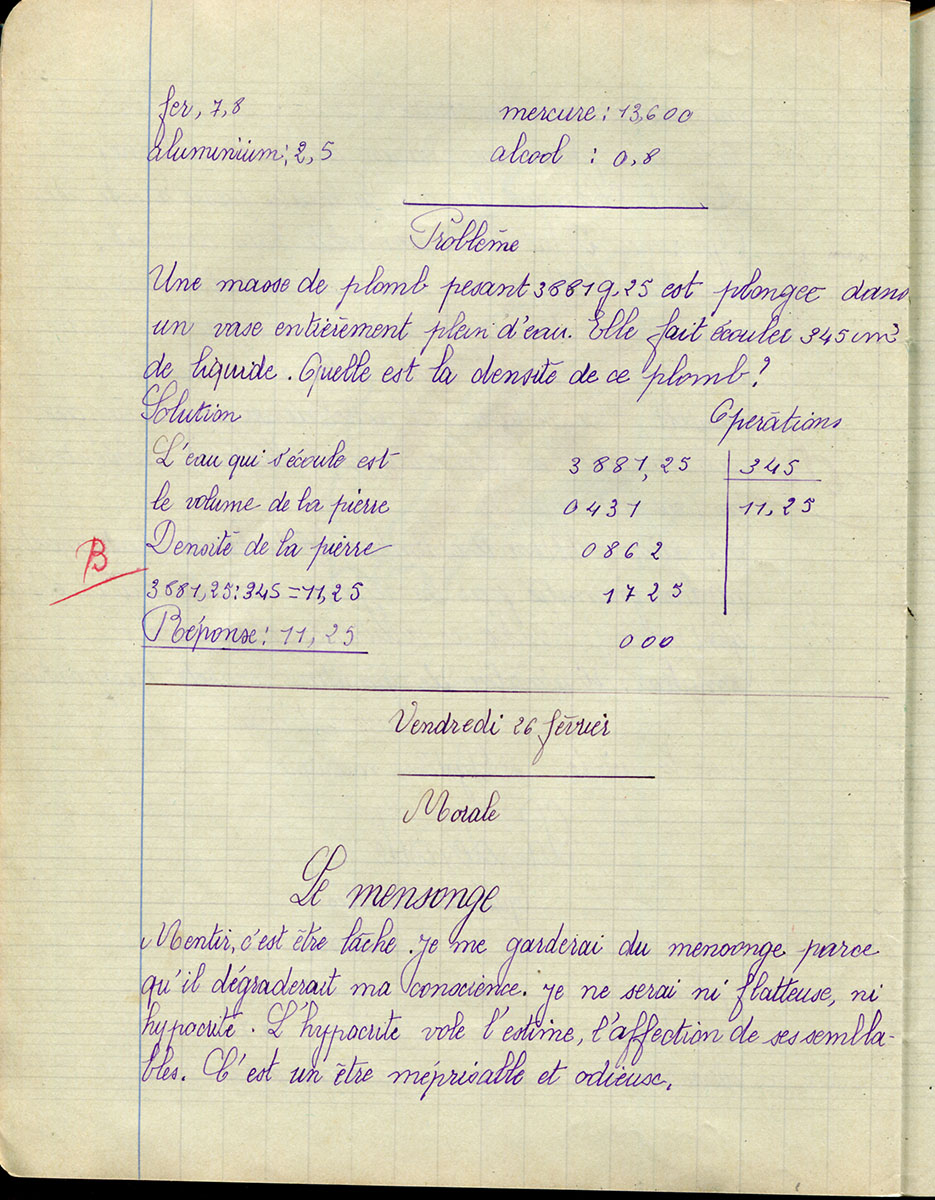 fer, 7,8 mercure : 13,600
aluminium : 2,5 alcool : 0,8
Problème
Une masse de plomb pesant 3881g,25 est plongée dans
un vase entièrement plein d'eau. Elle fait écouler 345 cm³
de liquide. Quelle est la densité de ce plomb ?
Solution Opérations
L'eau qui s'écoule est 3881,25 | 345
le volume de la pierre 0431 11,25
Densité de la pierre 0862
B
3881,25 : 345 = 11,25 1725
Réponse : 11,25 000
Vendredi 26 février
Morale
Le mensonge
Mentir, c'est être lâche. Je me garderai du mensonge parce
qu'il dégraderait ma conscience. Je ne serai ni flatteuse, ni
hypocrite. L'hypocrite vole l'estime, l'affection de ses sembla-
bles. C'est un être méprisable et odieux.